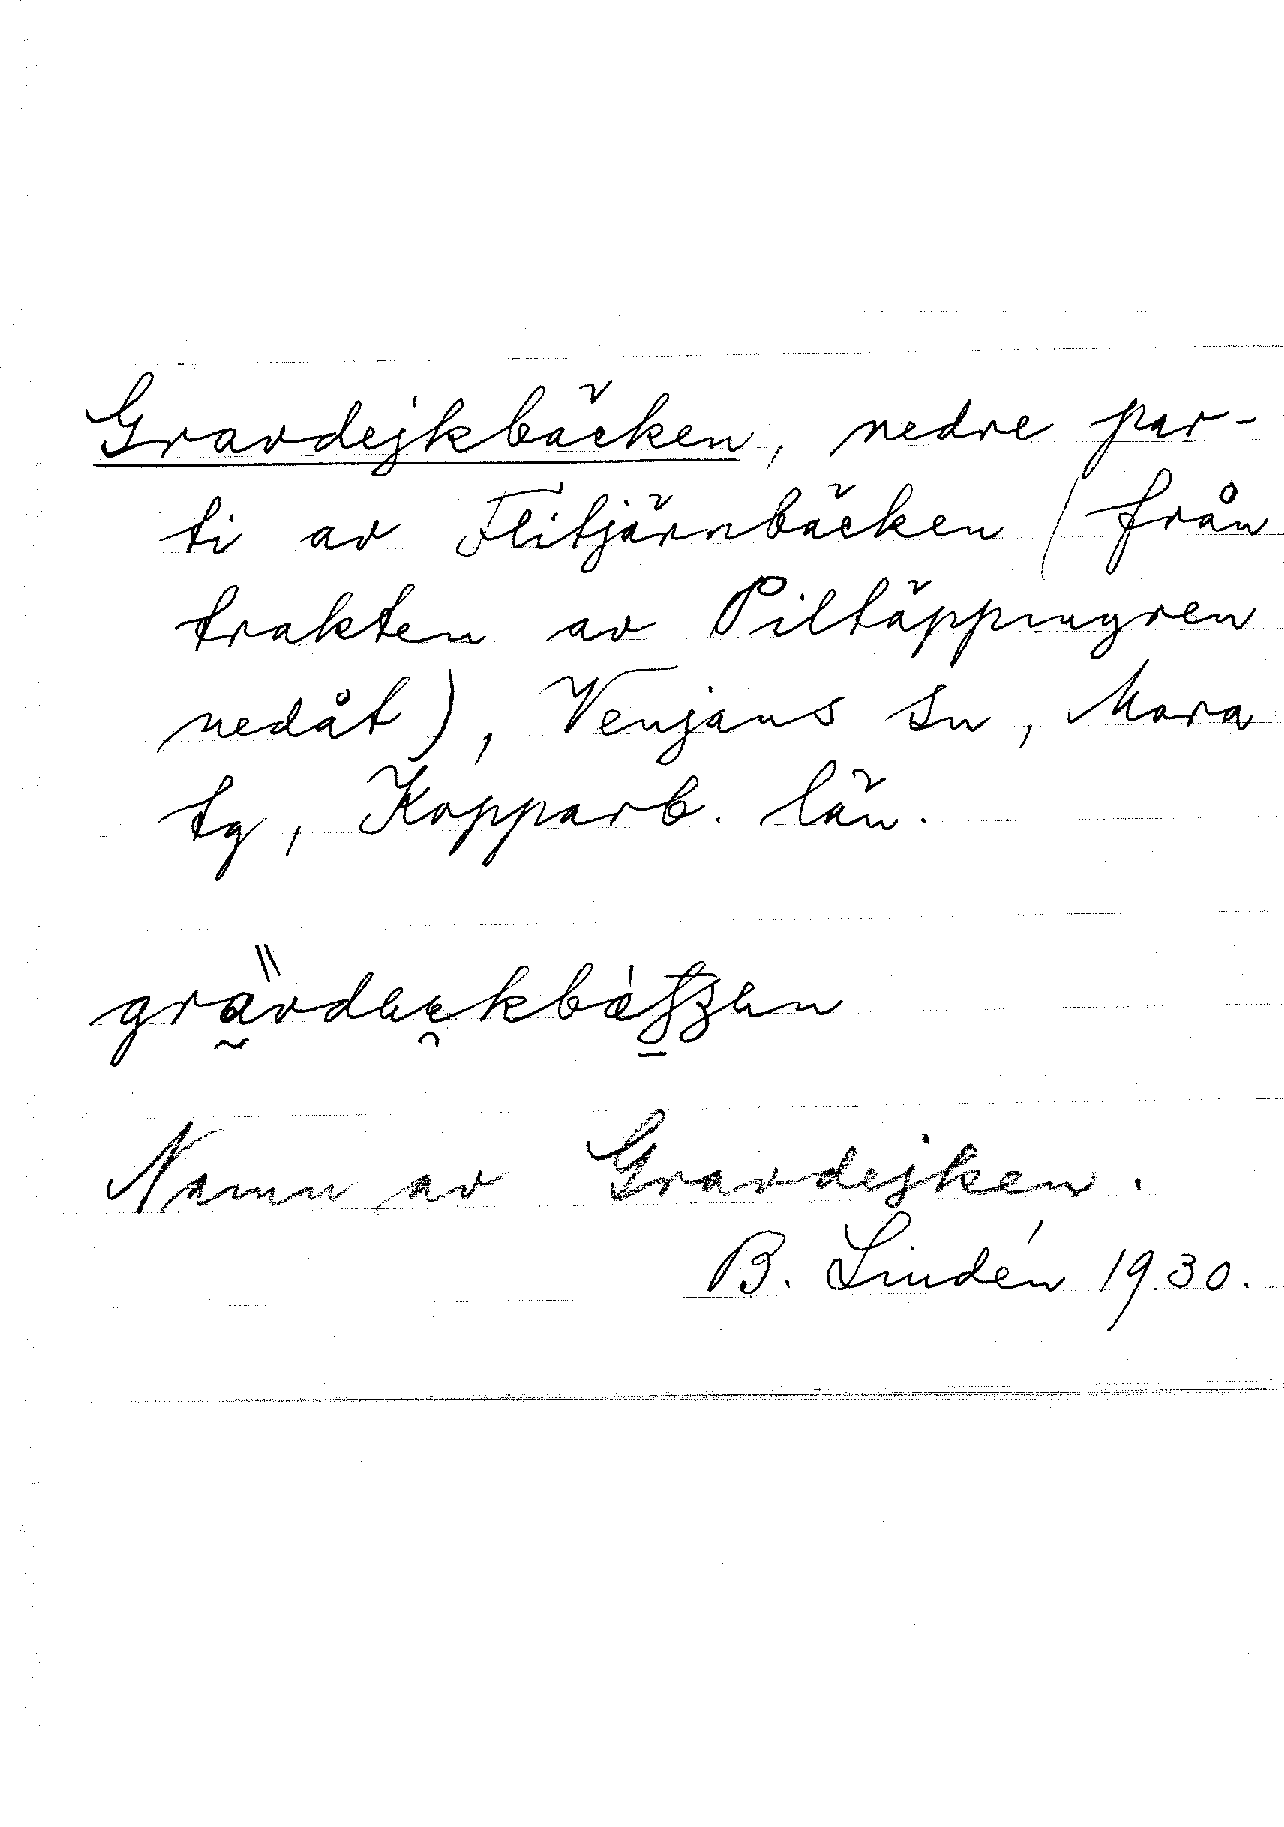 Gravdejkbäcken, nedre par-
ti av Flitjärnbäcken (från
trakten av Piltäppingren
nedåt), Venjans sn, Mora
tg, Kopparb. län.
Namn av Gravdejken.
B. Lindén 1930.